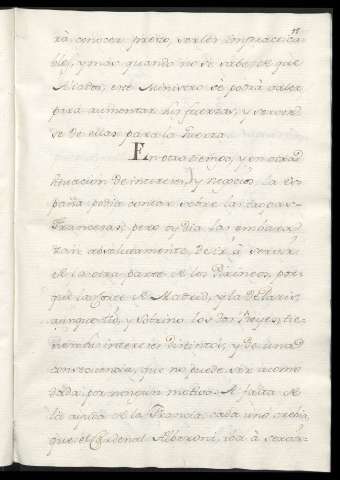 rà conocer presto, serles impracticables, y mas quando no se sabe de que
Aliados, este Ministro se podia valer
para aumentar sus fuerzas, y servir-
se de ellas para la Guerra.
En otro tiempo, y en otra
situacion de intereses, y negocios, la Es-
paña podia contar sobre las tropas
Francesas; pero oy dia las embaraz-
zan absolutamente, de ir à servir
de la otra parte de los Pirineos, por-
que la Corte de Madrid, y la de Paris,
aunque tio, y sobrino los dos Reyes, tie-
nen sus intereses distintos, y de una
consequencia, que no puede ser acomo-
dada, por ningun motivo. A falta de
la ayuda de la Francia, cada uno creìa,
que el Cardenal Alberoni, iba à servir-